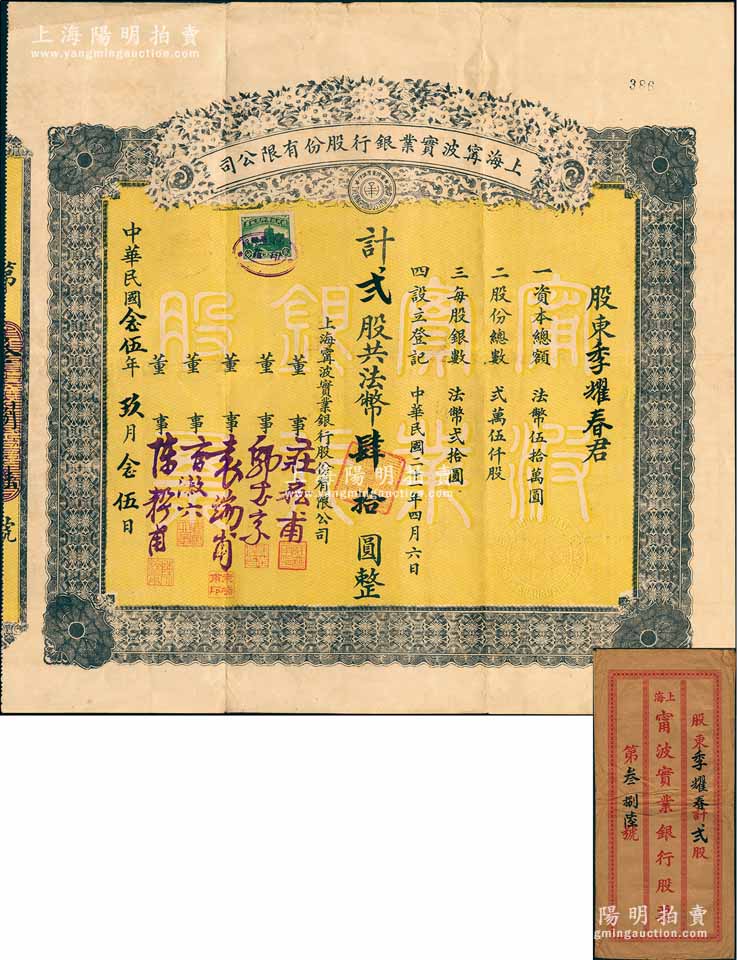 上海陽明拍賣
www.yangmingauction.com
386
上海甯波實業銀行股份有限公司
股東季耀春君
一資本總額 法幣伍拾萬圓
二股份總數 弍萬伍仟股
三每股銀數 法幣弍拾圓
四設立登記 中華民國二十年四月六日
計弍股共法幣肆拾圓整
上海甯波實業銀行股份有限公司
董事
董事
董事
董事
董事
中華民國念伍年玖月念伍日
第
號
上海陽明拍賣
www.yangmingauction.com
股東季耀春計弍股
上海甯波實業銀行股票
第叁捌陸號
上海陽明拍賣
www.yangmingauction.com